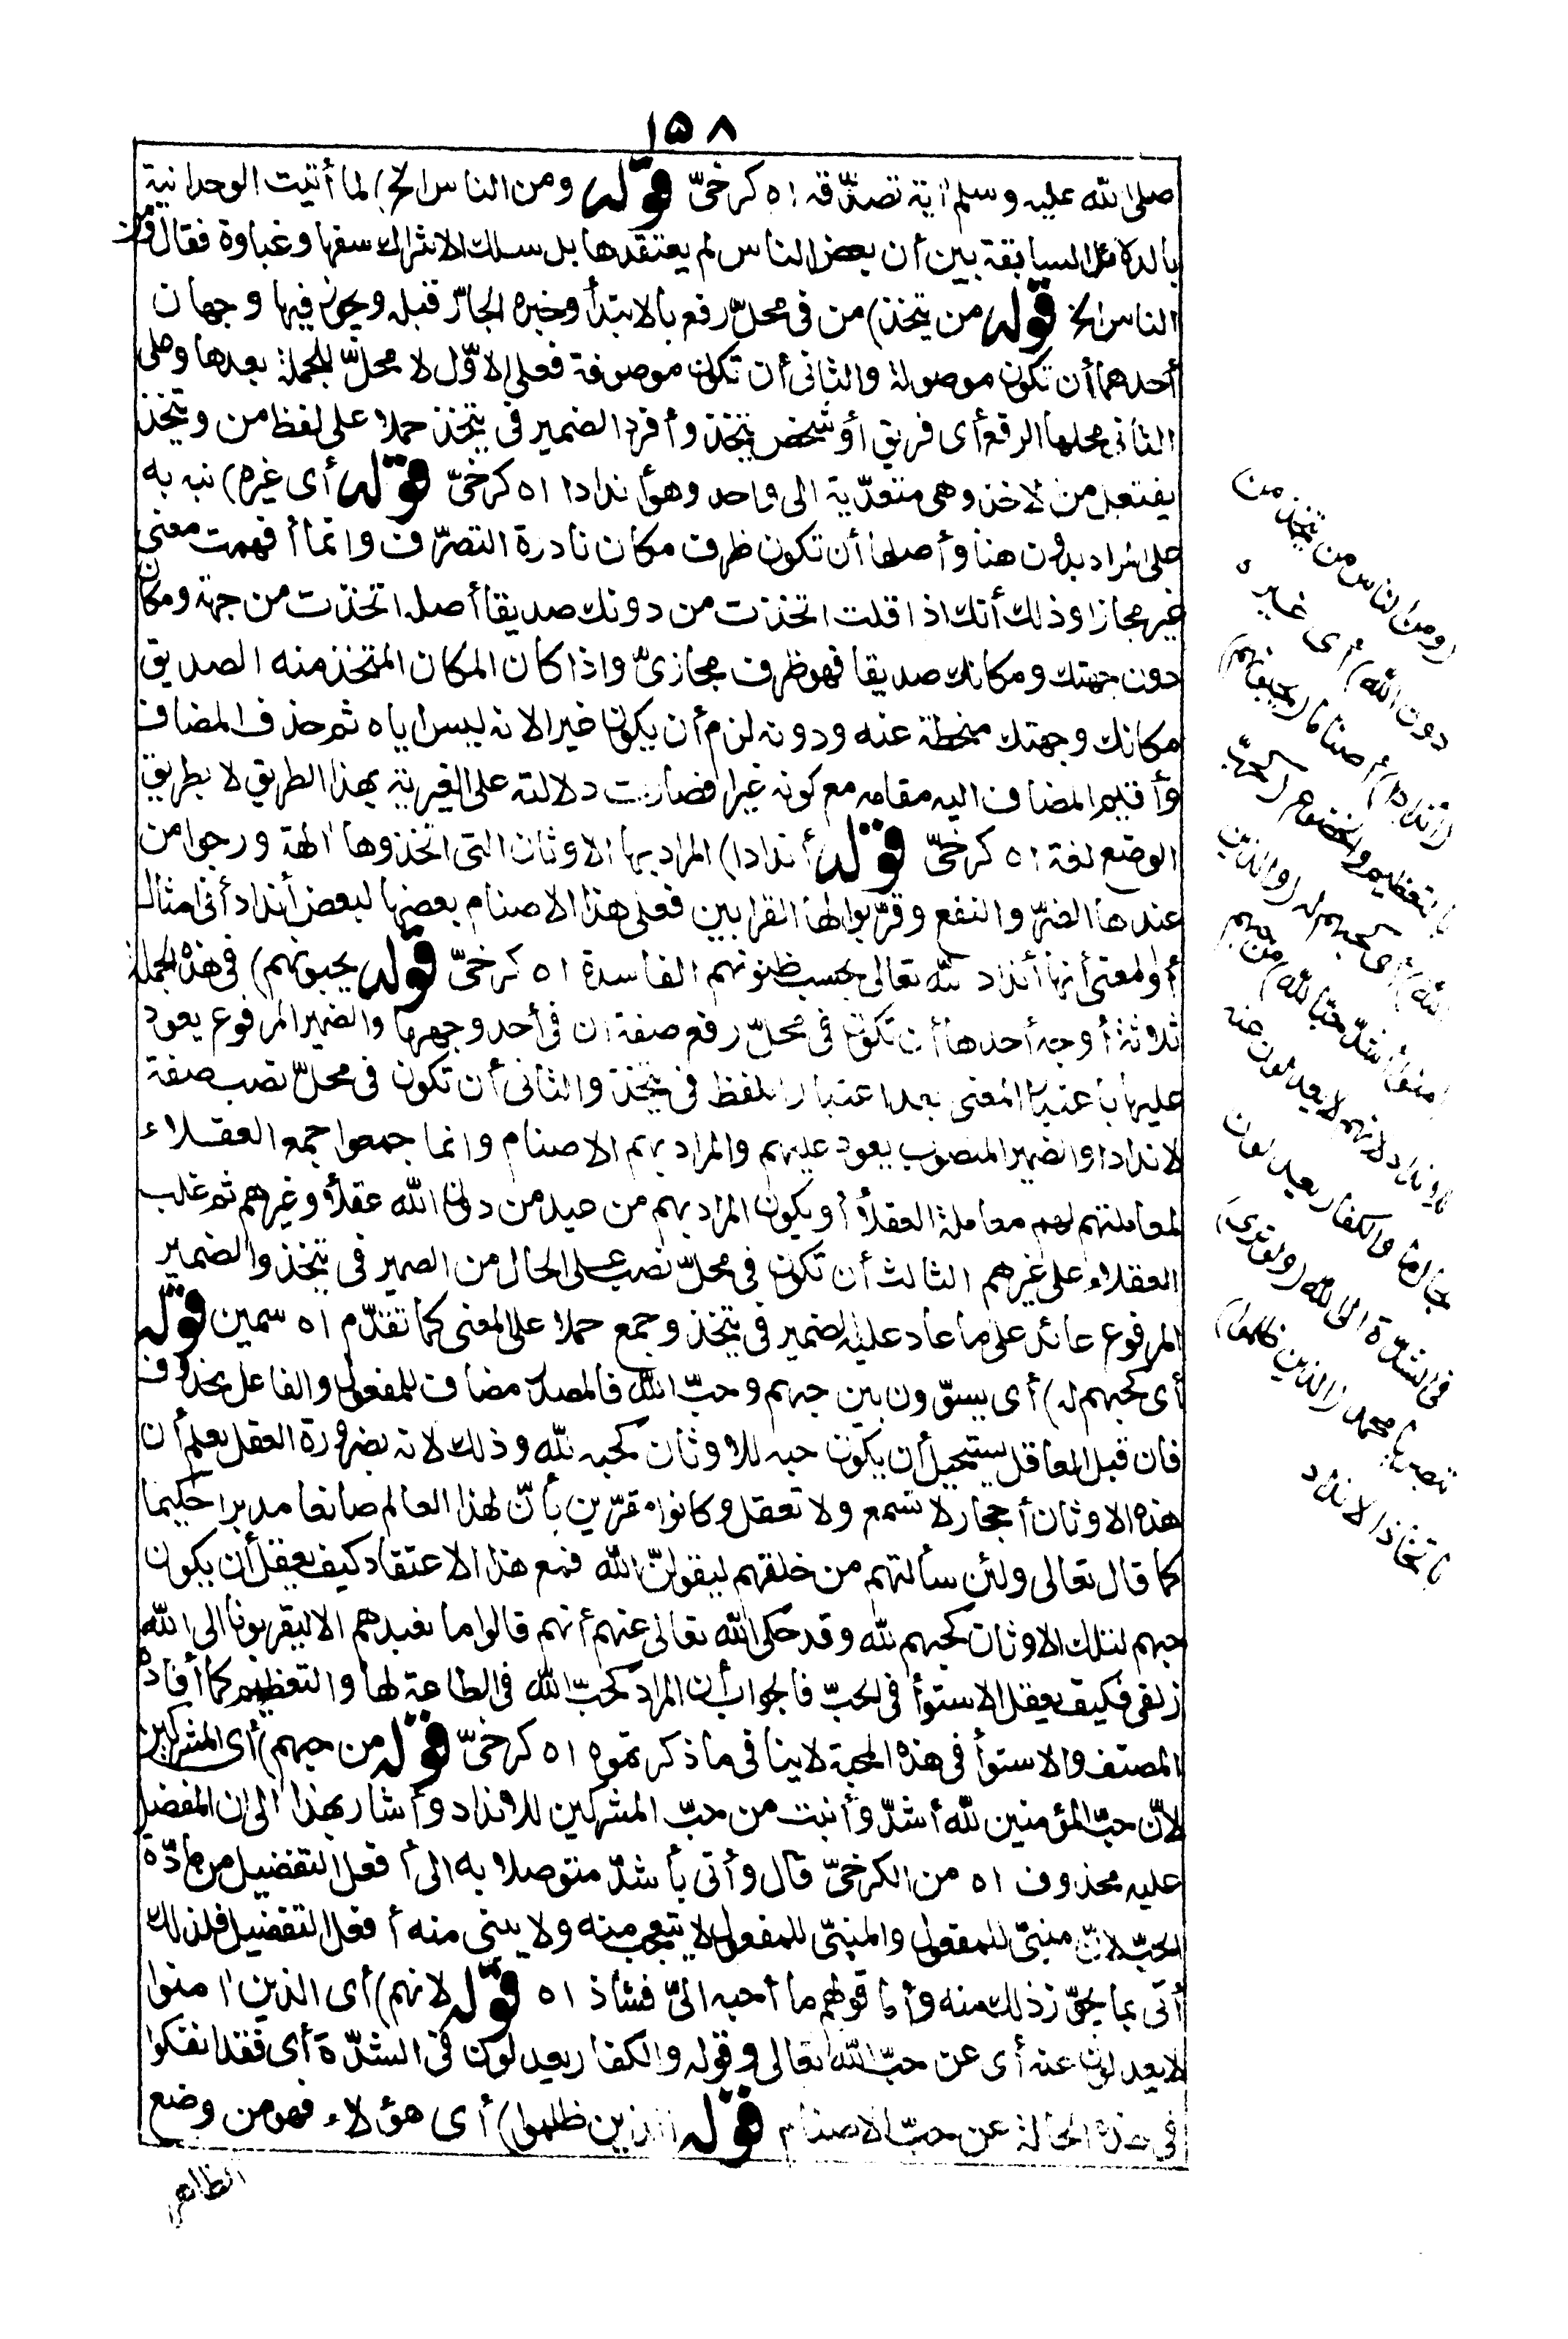 ١٥٨
صلى الله عليه وسلم آية تصدّقه اه كرخىّ قوله ومن الناس الخ) لما أثبت الوحدانية
بالدلائل السابقة بين أن بعض الناس لم يعتقدها بل سلك الاشراك سفها وغباوة فقال ومن
الناس الخ قوله من يتخذ) من فى محلّ رفع بالابتدأ وخبره الجارّ قبله ويجوز فيها وجهان
أحدهما أن تكون موصولة والثانى أن تكون موصوفة فعلى الاوّل لا محلّ للجملة بعدها وعلى
الثانى محلها الرفع أى فريق أو شخص يتخذ وأفرد الضمير فى يتخذ حملا على لفظ من ويتخذ
يفتعل من الاخذ وهى متعدّية الى واحد وهو أندادا اه كرخىّ قوله أى غيره) نبه به
على المراد بدون هنا وأصلها أن تكون ظرف مكان نادرة التصرّف وانما أفهمت معنى
غير مجازا وذلك أنك اذا قلت اتخذت من دونك صديقا أصله اتخذت من جهة ومكان
دون جهتك ومكانك صديقا فهو ظرف مجازىّ واذا كان المكان المتخذ منه الصديق
مكانك وجهتك منحطة عنه ودونه لزم أن يكون غيرا لانه ليس اياه ثم حذف المضاف
وأقيم المضاف اليه مقامه مع كونه غيرا فصارت دلالته على الغيرية بهذا الطريق لا بطريق
الوضع لغة اه كرخىّ قوله أندادا) المراد بها الاوثان التى اتخذوها آلهة ورجوا من
عندها الضرّ والنفع وقرّبوا لها القرابين فعلى هذا الاصنام بعضها لبعض أنداد أى أمثال
أو المعنى أنها أنداد لله تعالى بحسب ظنونهم الفاسدة اه كرخىّ قوله يحبونهم) فى هذه الجملة
ثلاثة أوجه أحدها أن تكون فى محلّ رفع صفة لمن فى أحد وجهيها والضمير المرفوع يعود
عليها باعتبار المعنى بعد اعتبار اللفظ فى يتخذ والثانى أن تكون فى محلّ نصب صفة
لاندادا والضمير المنصوب يعود عليهم والمراد بهم الاصنام وانما جمعوا جمع العقلاء
لمعاملتهم لهم معاملة العقلأ أو يكون المراد بهم من عبد من دون الله عقلأ وغيرهم ثم غلب
العقلاء على غيرهم الثالث أن تكون فى محلّ نصب على الحال من الضمير فى يتخذ والضمير
المرفوع عائد على ما عاد عليه الضمير فى يتخذ وجمع حملا على المعنى كما تقدّم اه سمين قوله
أى كحبهم له) أى يسوّون بين حبهم وحبّ الله فالمصدر مضاف للمفعول والفاعل محذوف
فان قيل العاقل يستحيل أن يكون حبه للاوثان كحبه لله وذلك لانه بضرورة العقل يعلم أن
هذه الاوثان أحجار لا تسمع ولا تعقل وكانوا مقرّين بأنّ لهذا العالم صانعا مدبرا حكيما
كما قال تعالى ولئن سألتهم من خلقهم ليقولنّ الله فمع هذا الاعتقاد كيف يعقل أن يكون
حبهم لتلك الاوثان كحبهم لله وقد حكى الله تعالى عنهم أنهم قالوا ما نعبدهم الا ليقربونا الى الله
زلفى فكيف يعقل الاستوأ فى الحبّ فالجواب أن المراد كحبّ الله فى الطاعة لها والتعظيم كما أفاده
المصنف والاستوأ فى هذه المحبة لا ينافى ما ذكرتموه اه كرخىّ قوله من حبهم) أى المشركين
لانّ حبّ المؤمنين لله أشدّ وأثبت من حبّ المشركين للانداد وأشار بهذا الى ان المفضل
عليه محذوف اه من الكرخىّ قال وأتى بأشدّ متوصلا به الى أفعل التفضيل من مادّة
الحبّ لانه مبنىّ للمفعول والمبنىّ للمفعول لا يتعجب منه ولا يبنى منه أفعل التفضيل فلذلك
أتى بما يجوّز ذلك منه وأما قولهم ما أحبه الىّ فشاذ اه قوله لانهم) أى الذين آمنوا
لا يعدلون عنه أى عن حبّ الله تعالى وقوله والكفار يعدلون فى الشدّة أى فقد انفكوا
فى هذه الحالة عن حبّ الاصنام قوله الذين ظلموا) أى هؤلاء فهو من وضع
الظاهر
(ومن الناس من يتخذ من
دون الله) أى غيره
(أندادا) أصناما (يحبونهم)
بالتعظيم والخضوع (كحبّ
الله) أى كحبهم له (والذين
آمنوا أشدّ حبا لله) من حبهم
للانداد لانهم لا يعدلون عنه
بحال ما والكفار يعدلون
فى الشدّة الى الله (ولو ترى)
تبصر يا محمد (الذين ظلموا)
باتخاذ الانداد